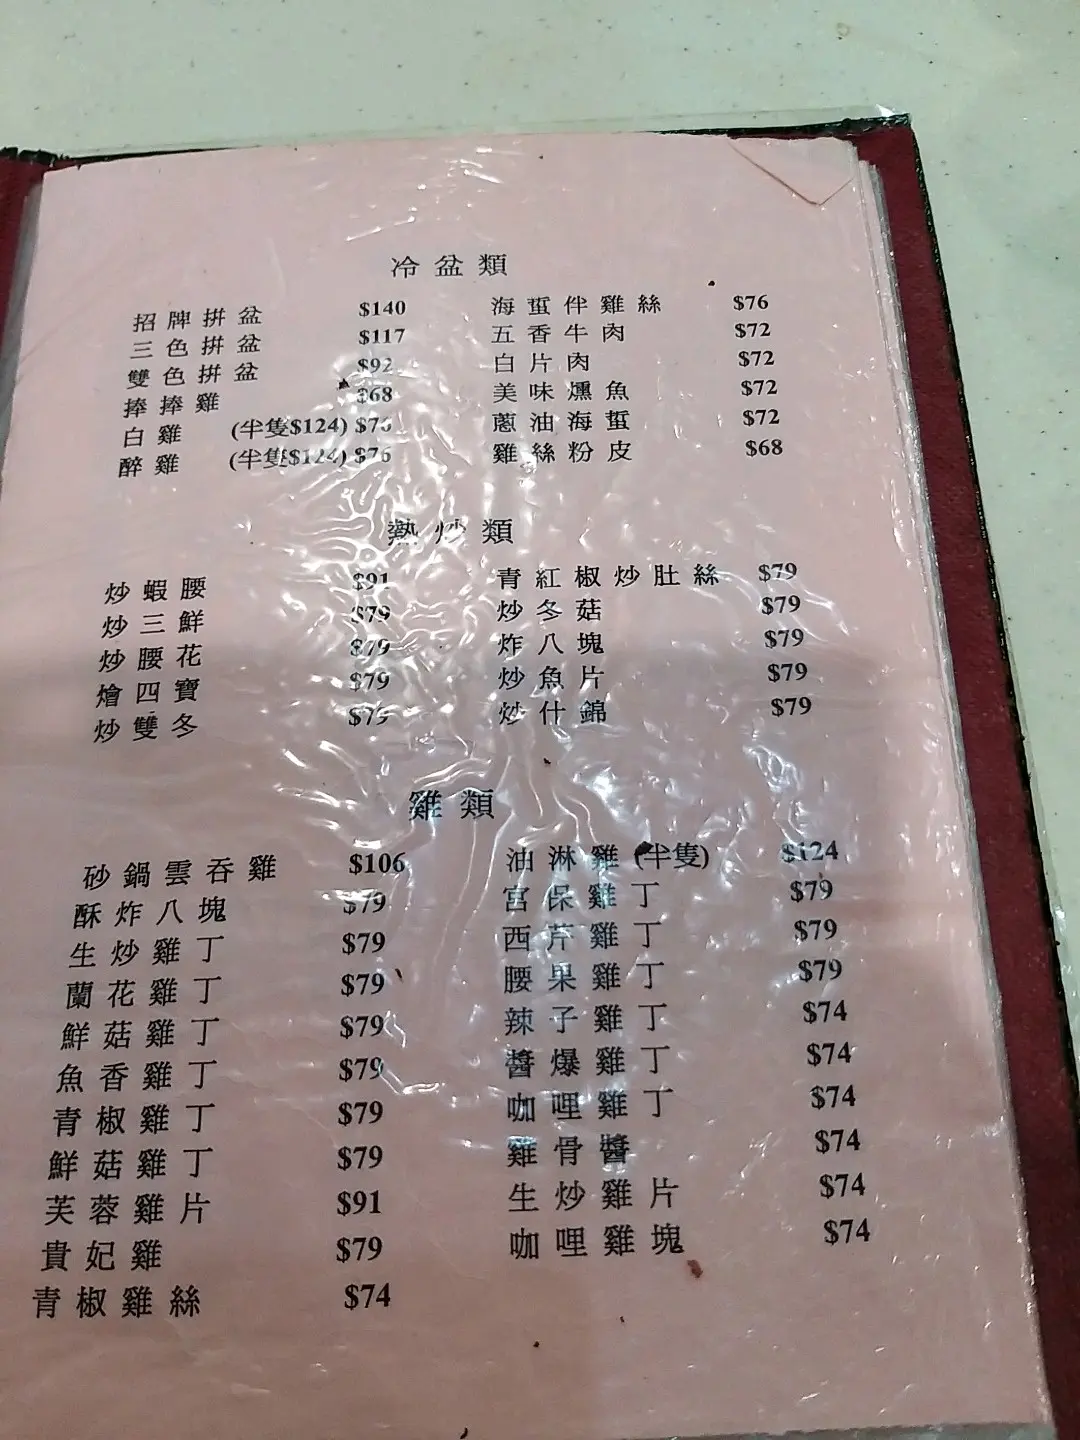 冷盆類
招牌拼盆 $140
三色拼盆 $117
雙色拼盆 $92
捧捧雞 $68
白雞 (半隻$124) $76
醉雞 (半隻$124) $76
海蜇伴雞絲 $76
五香牛肉 $72
白片肉 $72
美味燻魚 $72
蔥油海蜇 $72
雞絲粉皮 $68
熱炒類
炒蝦腰 $91
炒三鮮 $79
炒腰花 $79
燴四寶 $79
炒雙冬 $79
青紅椒炒肚絲 $79
炒冬菇 $79
炸八塊 $79
炒魚片 $79
炒什錦 $79
雞類
砂鍋雲吞雞 $106
酥炸八塊 $79
生炒雞丁 $79
蘭花雞丁 $79
鮮菇雞丁 $79
魚香雞丁 $79
青椒雞丁 $79
鮮菇雞丁 $79
芙蓉雞片 $91
貴妃雞 $79
青椒雞絲 $74
油淋雞 (半隻) $124
宮保雞丁 $79
西芹雞丁 $79
腰果雞丁 $79
辣子雞丁 $74
醬爆雞丁 $74
咖哩雞丁 $74
雞骨醬 $74
生炒雞片 $74
咖哩雞塊 $74